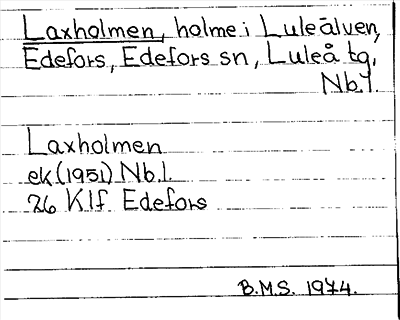 Laxholmen, holme i Luleälven,
Edefors, Edefors sn, Luleå tg,
Nb.l.
Laxholmen
ek (1951) Nb.l.
26 Klf Edefors
B.M.S. 1974.